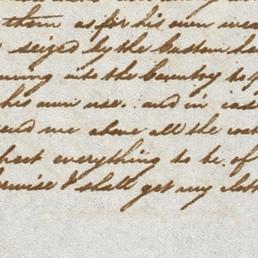 them, as for his own
seized by the Custom
into the Country to
his own use. and in
me above all the
everything to be of
I shall get my